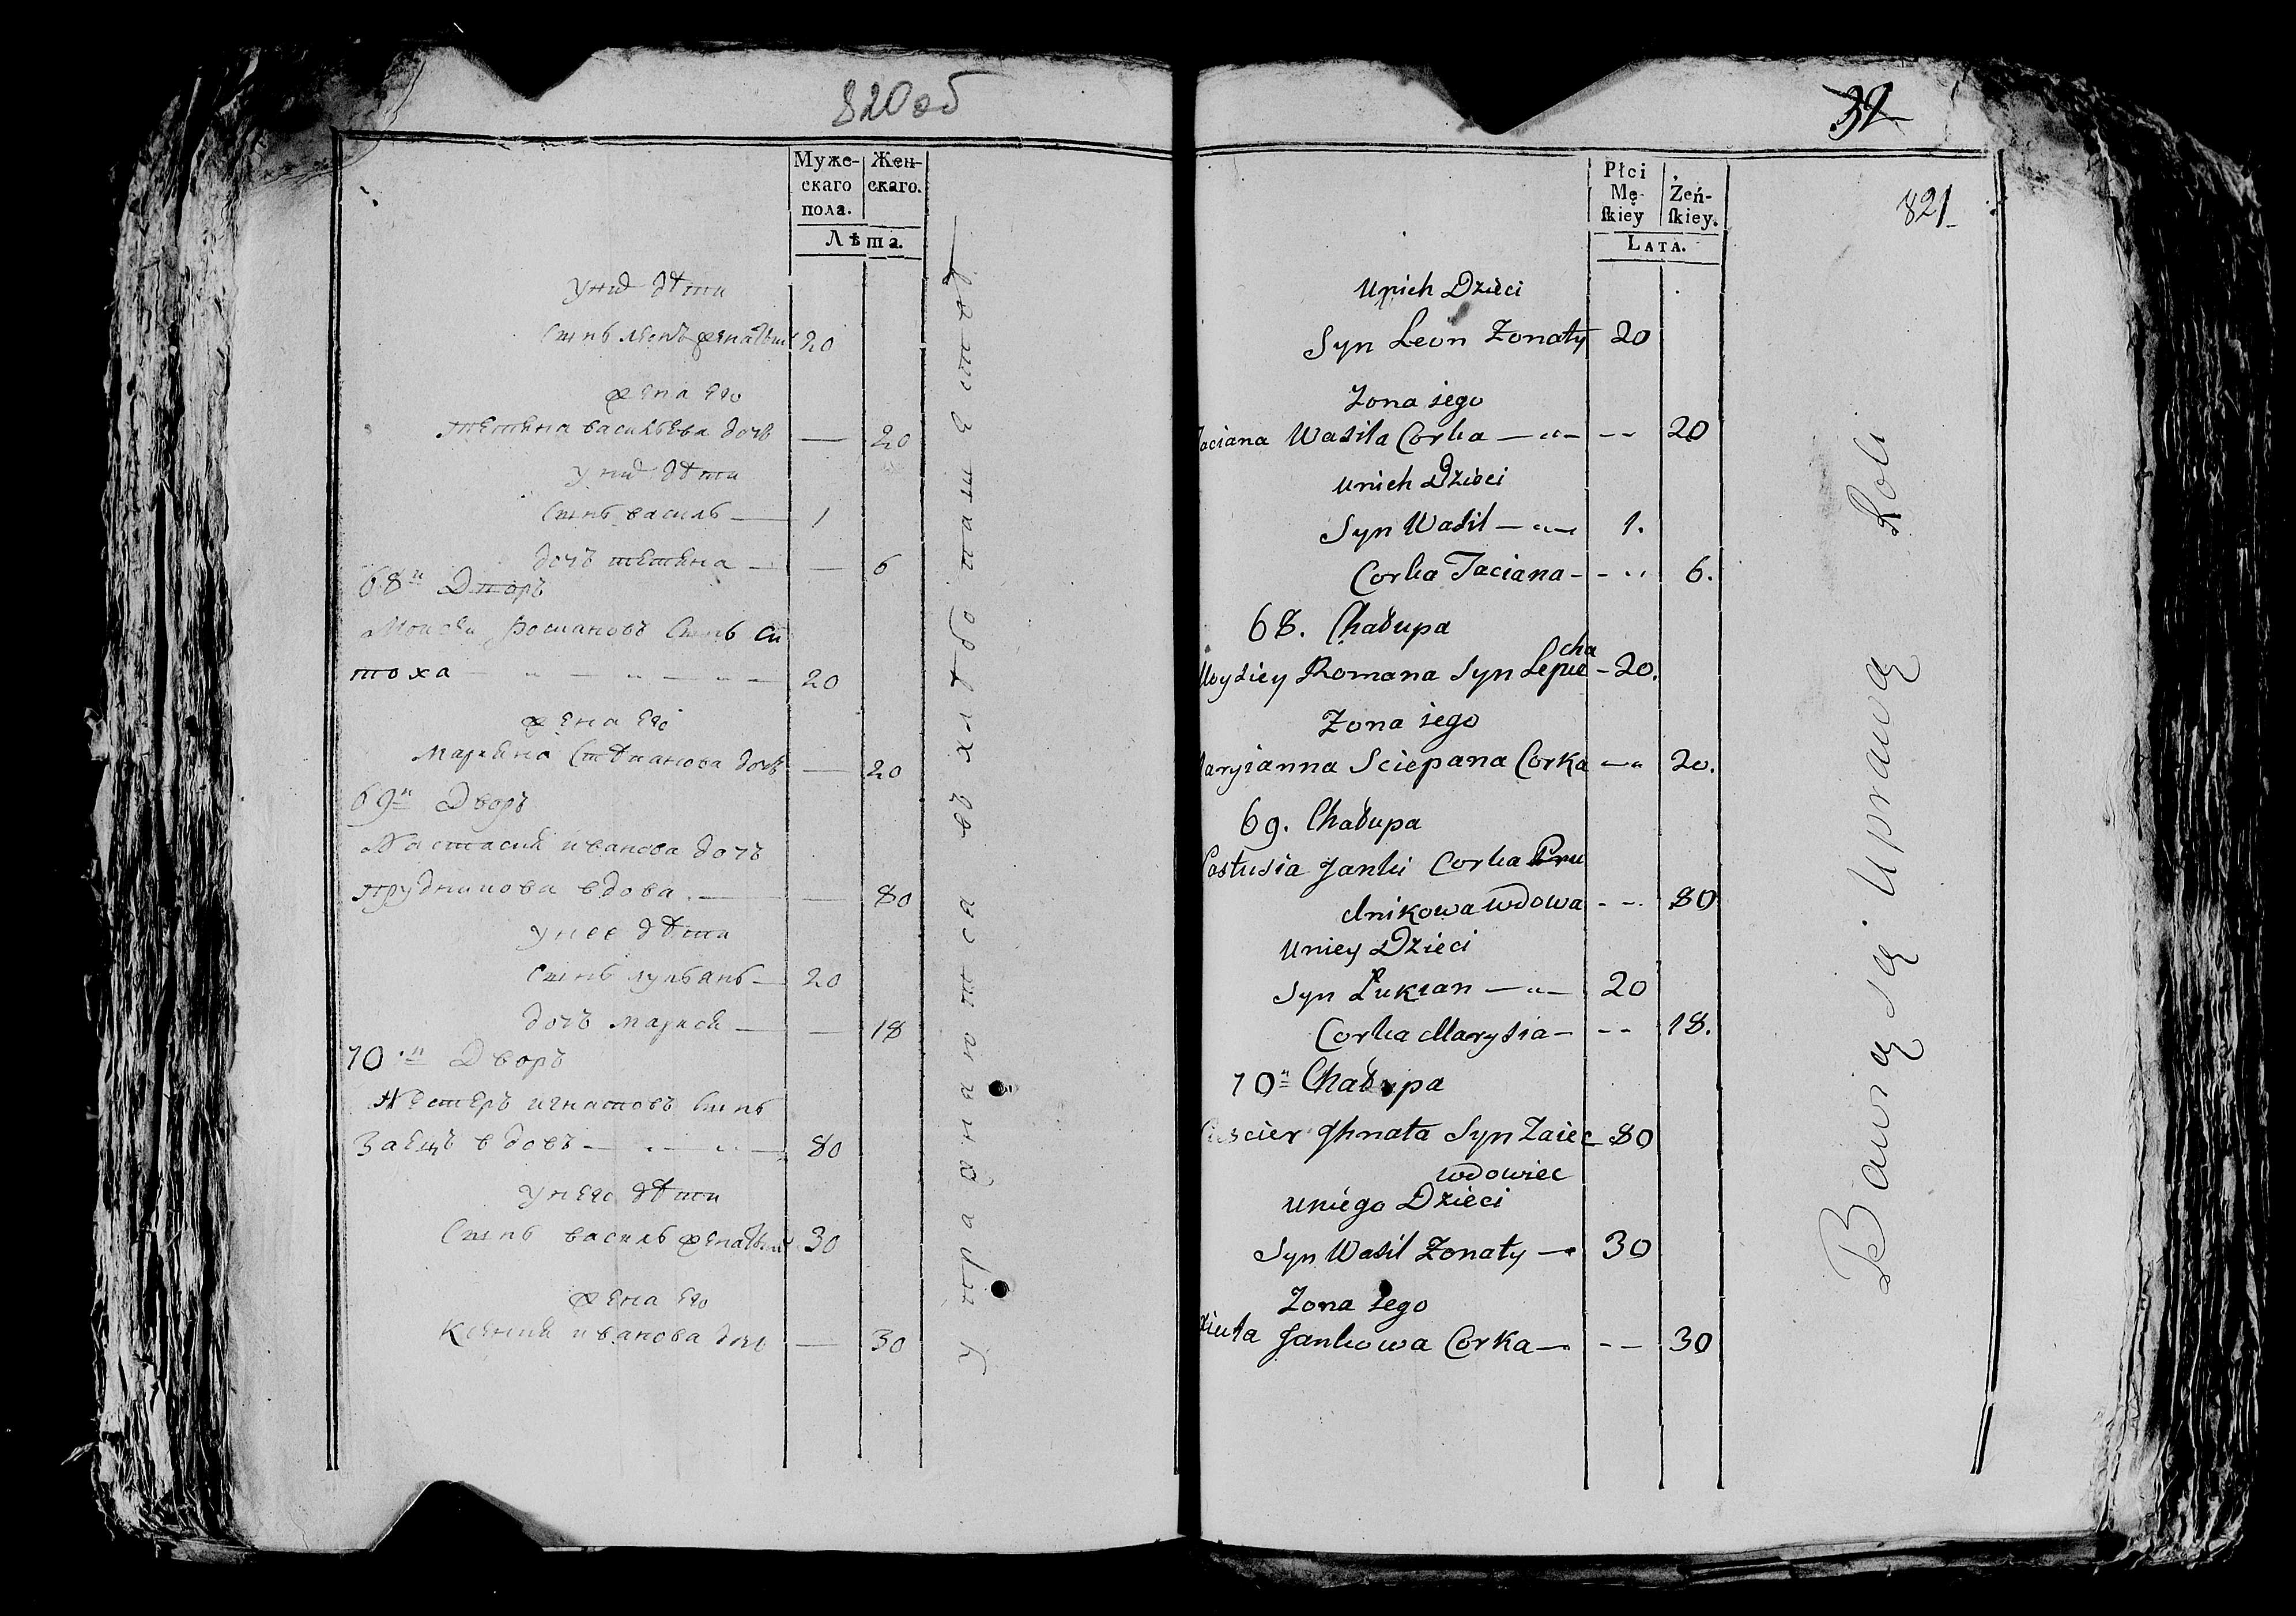 820 об
Муже-
скаго
пола.
Жен-
скаго.
Лѣта.
У них дѣти
Сынъ леонъ женатыи 20
жена его
татяна васильева дочь — 20
У них дѣти
Сынъ василь — 1
дочъ татяна — — 6
68й Дворъ
Моисеи Романовъ Сынъ
— " — " — " — 20
жена его
Марьяна Стѣпанова дочь — 20
69й Дворъ
Настасия иванова дочъ
прудникова вдова — — 80
У нее дѣти
Сынъ лукьянъ — 20
дочъ марися — — 18
70й Дворъ
Нестеръ игнатовъ Сынъ
Заецъ вдовъ — " — " — 80
У него дѣти
Сынъ василь женатыи 30
жена его
Ксения иванова дочь — 30
32
821
Płci
Mę-
ſkiey
Żeń-
ſkiey.
LATA.
Unich Dzieci
Syn Leon Zonaty 20
Zona jego
Taciana Wasila Corka — " — -- 20
Unich Dzieci
Syn Wasil — " — 1.
Corka Taciana - - " 6.
68. Chałupa
Moysiey Romana Syn - 20.
Zona jego
Maryianna Sciepana Corka — " 20.
69. Chałupa
Janki Corka Pru
dnikowa wdowa - - 80
Uniey Dzieci
Syn Łukian — " — 20
Corka Marysia — - - 18.
70н Chałupa
Ihnata Syn Zaiec 80
wdowiec
Uniego Dzieci
Syn Wasil Zonaty — 30
Zona jego
Jankowa Corka — - — 30
Bawią się Uprawą Roli